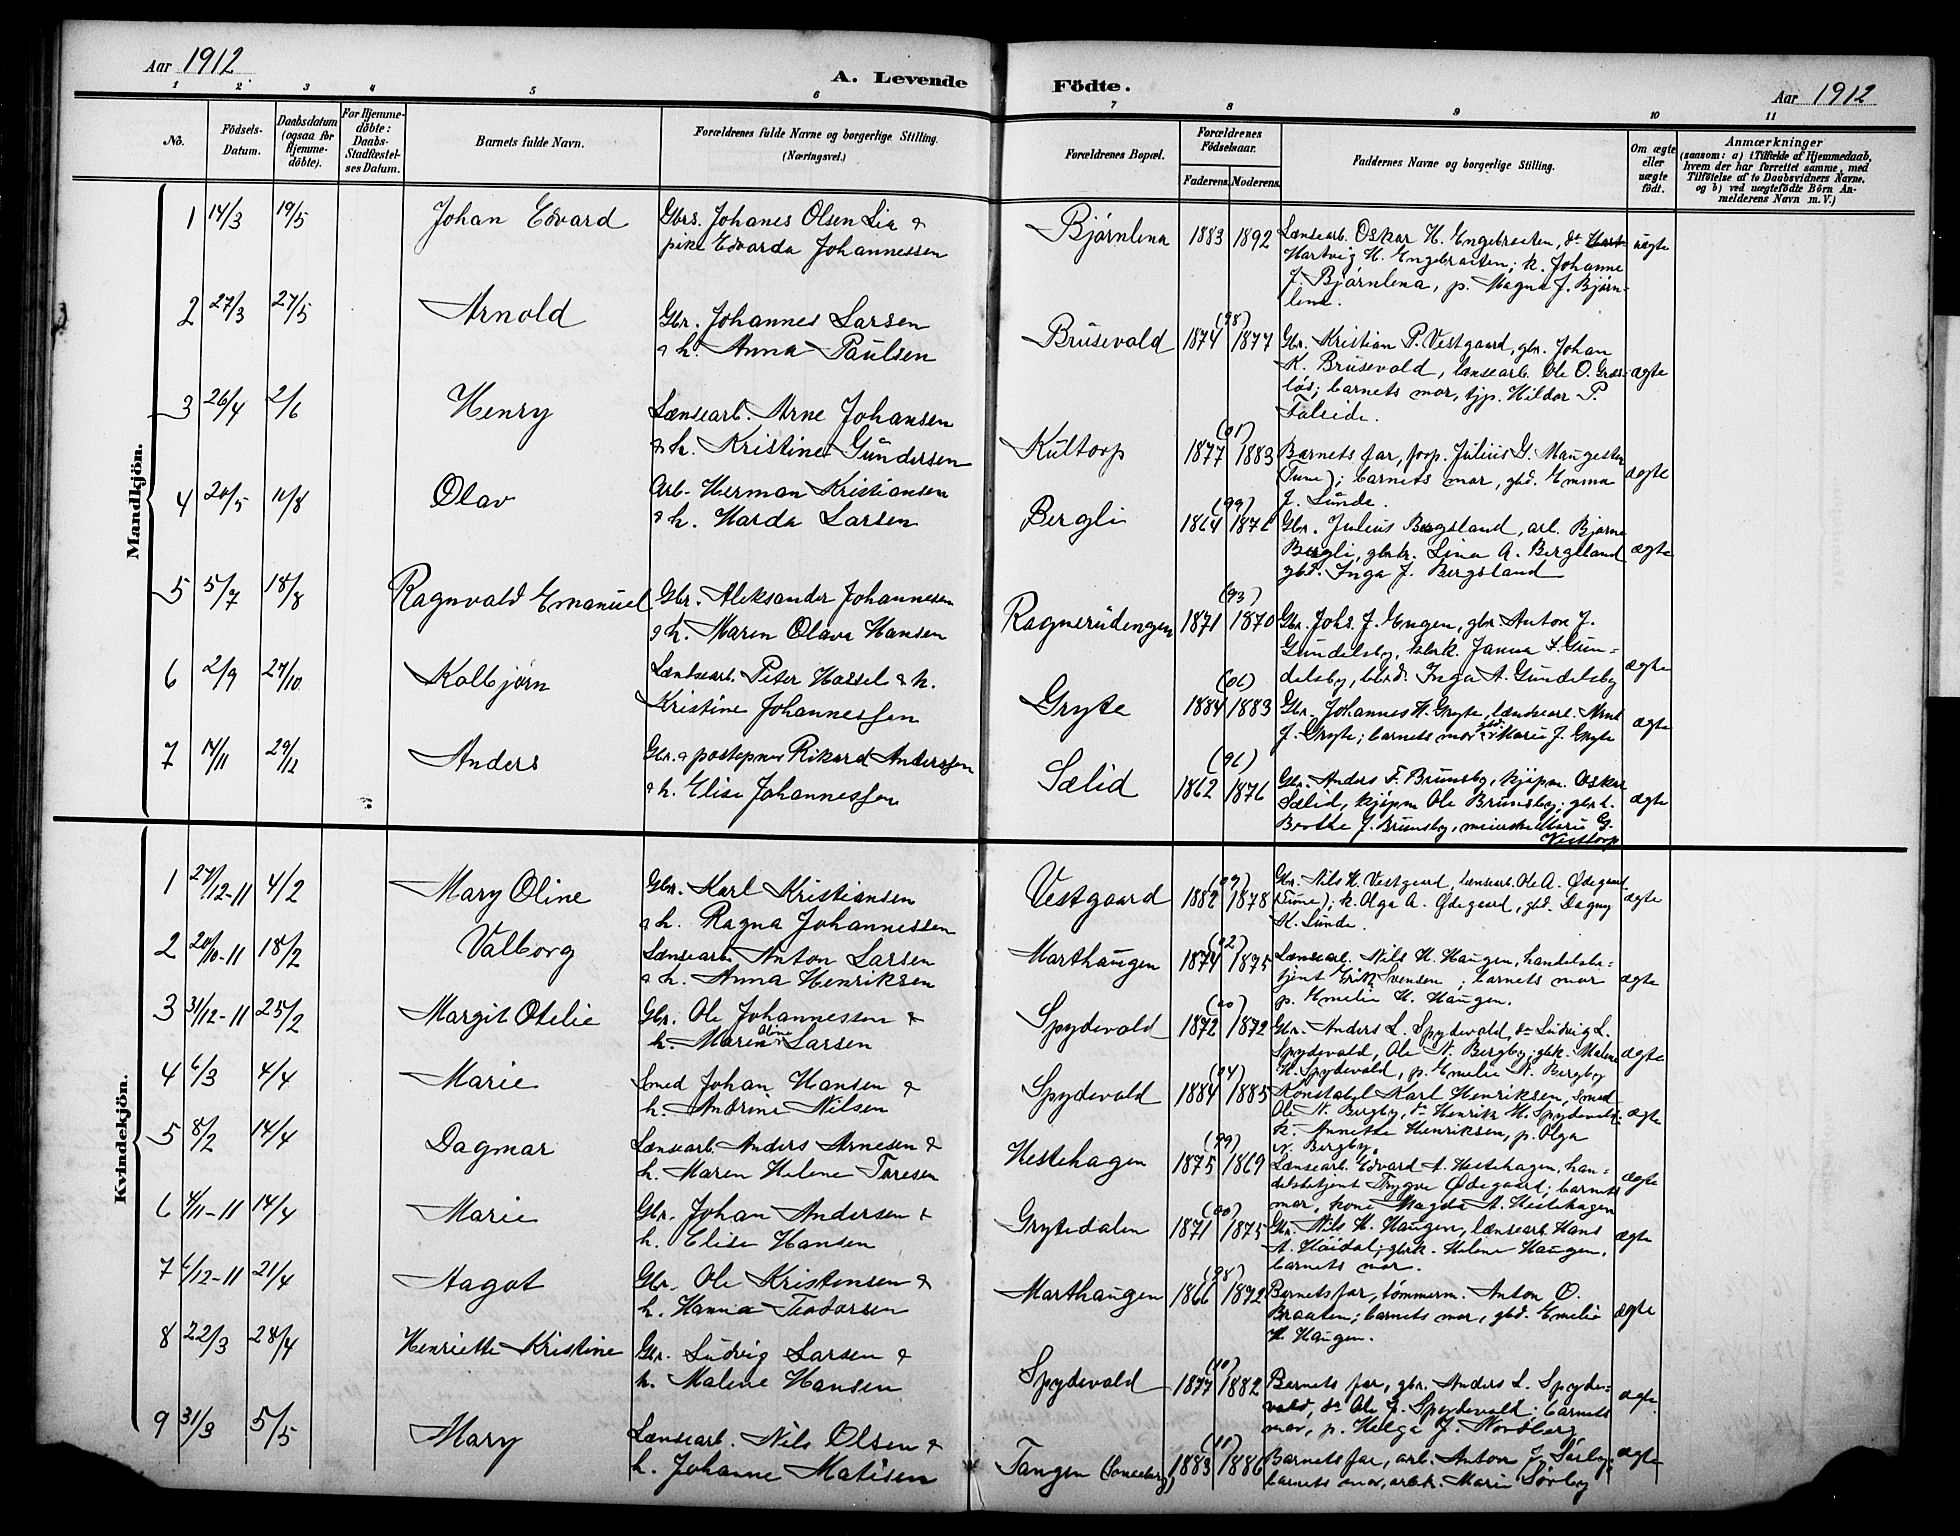 Aar 1912
A. Levende Födte.
Aar 1912
1 2 3 4 5 6 7 8 9 10 11
No.
Födsels-Datum.
Daabsdatum (ogsaa for Hjemme-döbte).
For Hjemme-döbte: Daabs-Stadfæstel-ses Datum.
Barnets fulde Navn.
Forældrenes fulde Navne og borgerlige Stilling.
(Næringsvei.)
Forældrenes Bopæl.
Forældrenes Födselsaar.
Faderens. Moderens.
Faddernes Navne og borgerlige Stilling.
Om ægte eller uægte födt.
Anmærkninger
(saasom: a) i Tilfælde af Hjemmedaab,
hvem der har forrettet samme, med
Tilföielse af to Daabsvidners Navne.
og b) ved uægtefödte Börn An-
melderens Navn m. V.)
Mandkjön.
1 14/3 19/5 Johan Edvard
Gbrs. Johanes Olsen Lia &
pike Edvarda Johannessen
Bjørnlena 1883 1892
Lænsearb. Oskar H. Engebraaten, do
Hartvig H. Engebraaten; k. Johanne
J. Bjørnlena, p. Magna J. Bjørn-
lena.
uægte
2 27/3 27/5 Arnold
Gbr. Johannes Larsen
& h. Anna Paulsen
Brusevold 1874 (98) 1877
Gbr. Kristian P. Vestgaard, gbr. Johan
K. Brusevold, lænsearb. Ole O. Græs-
løs; barnets mor, tjp. Hildor P.
Falside.
ægte
3 26/4 2/6 Henry
Lænsearb. Arne Johansen
& h. Kristine Gundersen
Kultorp 1877 (01) 1883
Barnets far, forp. Julius G. Maugesten
(Tune); barnets mor, gbd. Emma
J. Lunde.
ægte
4 20/5 11/8 Olav
Arb. Herman Kristiansen
& h. Harda Larsen
Bergli 1864 (99) 1876
Gbr. Julius Bergsland, arb. Bjarne
Bergli, gbrk. Lina A. Bergsland
gbd. Inga J. Bergsland
ægte
5 5/7 18/8 Ragnvald Emanuel
Gbr. Aleksander Johannesen
& h. Maren Olava Hansen
Ragnerudengen 1871 (93) 1870
Gbr. Johs. J. Engen, gbr. Anton J.
Gundelsby, gbrk. Janna F. Gun-
delsby, gbrd. Inga A. Gundelsby
ægte
6 2/9 27/10 Kolbjørn
Lændsearb. Peter Hassel & h.
Kristine Johannessen
Gryte 1884 (06) 1883
Gbr. Johannes H. Gryte, lændsearb. Arnt
J. Gryte; barnets mor, gbd. Marie J. Gryte
ægte
7 14/11 29/12 Anders
Gbr. & postepner Rikard Anderssen
& h. Elise Johannessen
Sælid 1862 (96) 1876
Gbr. Anders F. Brunsby, kjøpm. Oskar
Sælid, kjøpm Ole Brunsby; gbr k.
Berthe J. Brunsby, meierske Marie G.
Vesttorp
ægte
Kvindekjön.
1 27/12-11 4/2 Mary Oline
Gbr. Karl Kristiansen
& h. Ragna Johannessen
Vestgaard 1882 (09) 1878
Gbr. Nils H. Vestgaard, lænsearb. Ole A. Ødegaard
(Tune); k. Olga A. Ødegaard, gbd. Dagny
K. Lunde.
ægte
2 20/10-11 18/2 Valborg
Lænsearb. Anton Larsen
& h. Anna Henriksen
Marthaugen 1874 (02) 1875
Lænsearb. Nils H. Haugen, handelsbe-
tjent Erik Svensen; barnets mor
p. Emelie H. Haugen.
ægte
3 31/12-11 25/2 Margit Otelie
Gbr. Ole Johannessen &
h. Maren Oline Larsen
Spydevold 1872 (00) 1872
Gbr. Anders L. Spydevold, do Ludvig L.
Spydevold, Ole N. Bergby; gbk. Malene
H. Spydevold, p. Emelie N. Bergby
ægte
4 6/3 4/4 Marie
Smed Johan Hansen &
h. Andrine Nilsen
Spydevold 1884 (04) 1885
Konstabel Karl Henriksen, smed
Ole N. Bergby, do Henrik H. Spydevold;
k. Annette Henriksen, p. Olga
N. Bergby.
ægte
5 8/2 14/4 Dagmar
Lænsearb. Anders Arnesen &
h. Maren Helene Toresen
Hestehagen 1875 (99) 1869
Lænsearb. Edvard A. Hestehagen, han-
delsbetjent Trygve Ødegaard; barnets
mor, kone Magda A. Hestehagen
ægte
6 4/11-11 14/4 Marie
Gbr. Johan Andersen &
h. Elise Hansen
Grytedalen 1871 (00) 1875
Gbr. Nils H. Haugen, lænsearb. Hans
A. Høidal; gbrk. Helene Haugen,
barnets mor.
ægte
7 6/12-11 21/4 Aagot
Gbr. Ole Kristensen &
h. Hanna Teodorsen
Marthaugen 1866 (98) 1872
Barnets far, tømmerm. Anton O.
Braaten; barnets mor, gbd. Emelie
H. Haugen.
ægte
8 22/3 28/4 Henriette Kristine
Gbr. Ludvig Larsen &
h. Malene Hansen
Spydevold 1877 (10) 1882
Barnets far, gbr. Anders L. Spyde-
vold, do Ole J. Spydevold; barnets
mor, p. Helga J. Nordberg
ægte
9 31/3 5/5 Mary
Lænsearb. Nils Olsen &
h. Johanne Matisen
Tangen 1883 (10) 1886
Barnets far, arb. Anton J. Sørby;
barnets mor, arbk. Marie Sørby
ægte